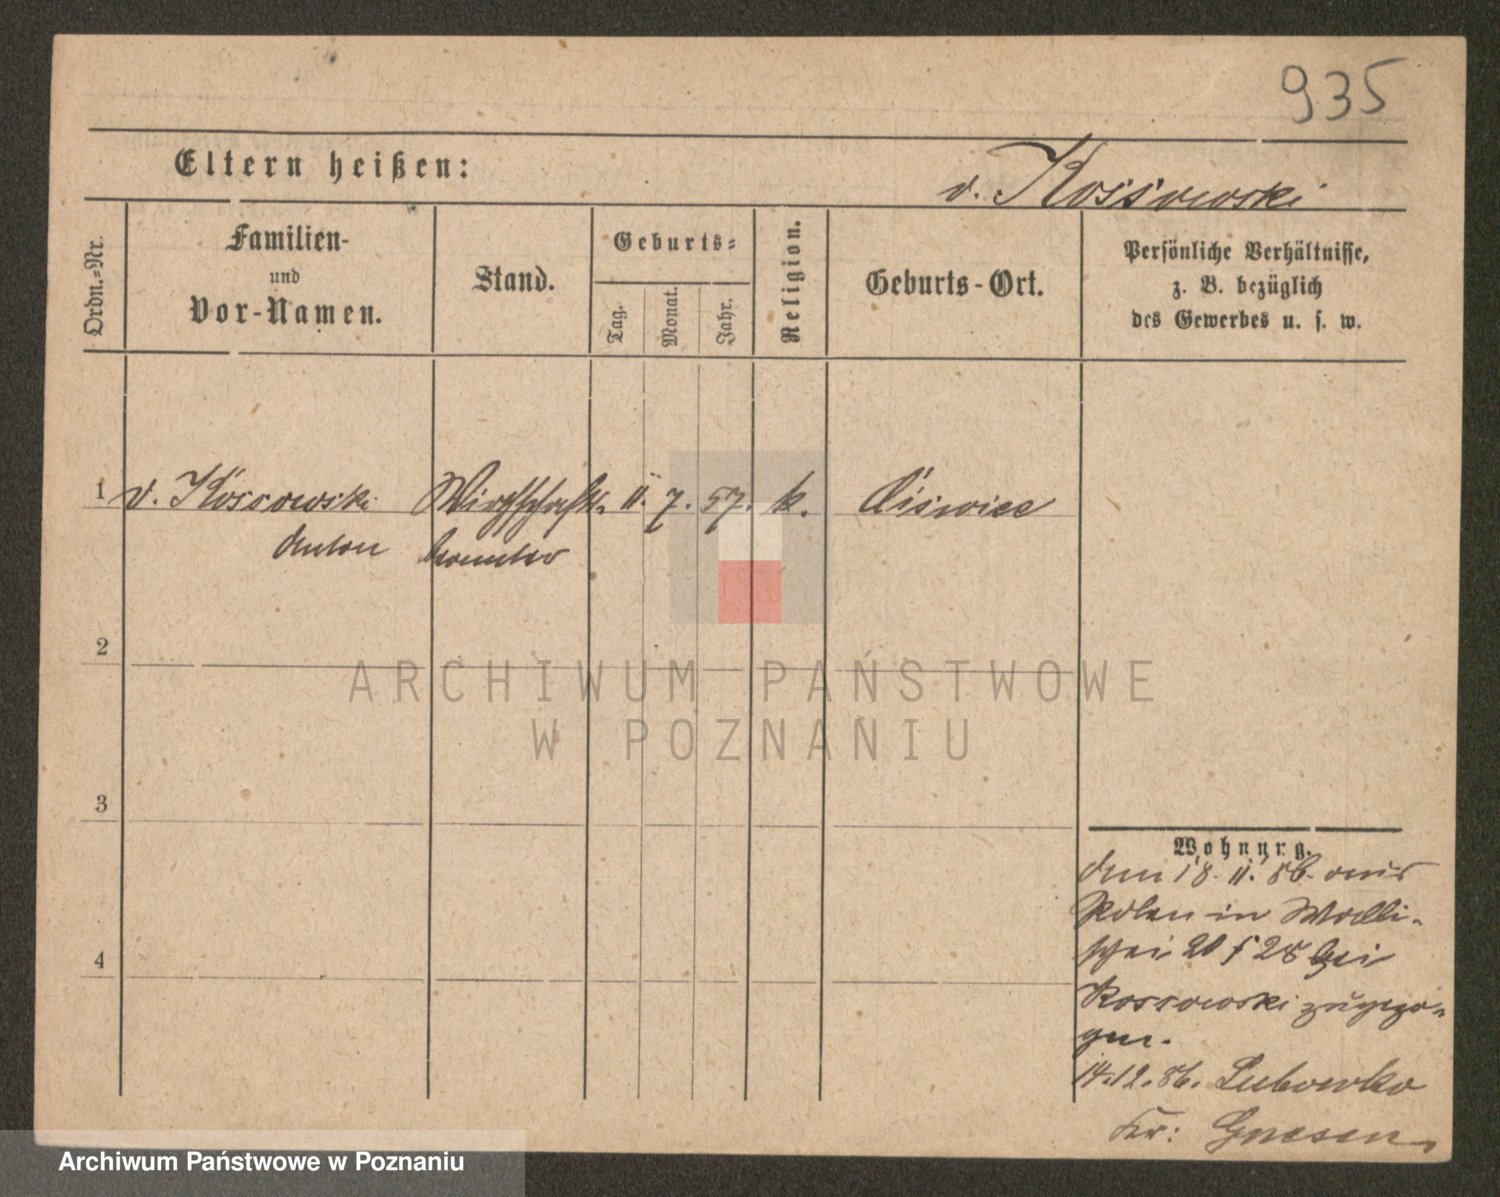 935
Eltern heißen:
v. Kossowski
Ordn.-Nr.
Familien-
und
Vor-Namen.
Stand.
Geburts-
Tag.
Monat.
Jahr.
Religion.
Geburts-Ort.
Persönliche Verhältnisse,
z. B. bezüglich
des Gewerbes u. s. w.
1 v. Kossowski Wirthschafts- 11. 7. 57. k.
Anton beamter
2
3
4
Wohnung.
den 18. 11. 86. aus
Polen in Walli-
schei 28 bei
Kossowski zugezo-
gen.
14.12.86. Lubowko
Kr: Gnesen
ARCHIWUM PAŃSTWOWE
W POZNANIU
Archiwum Państwowe w Poznaniu